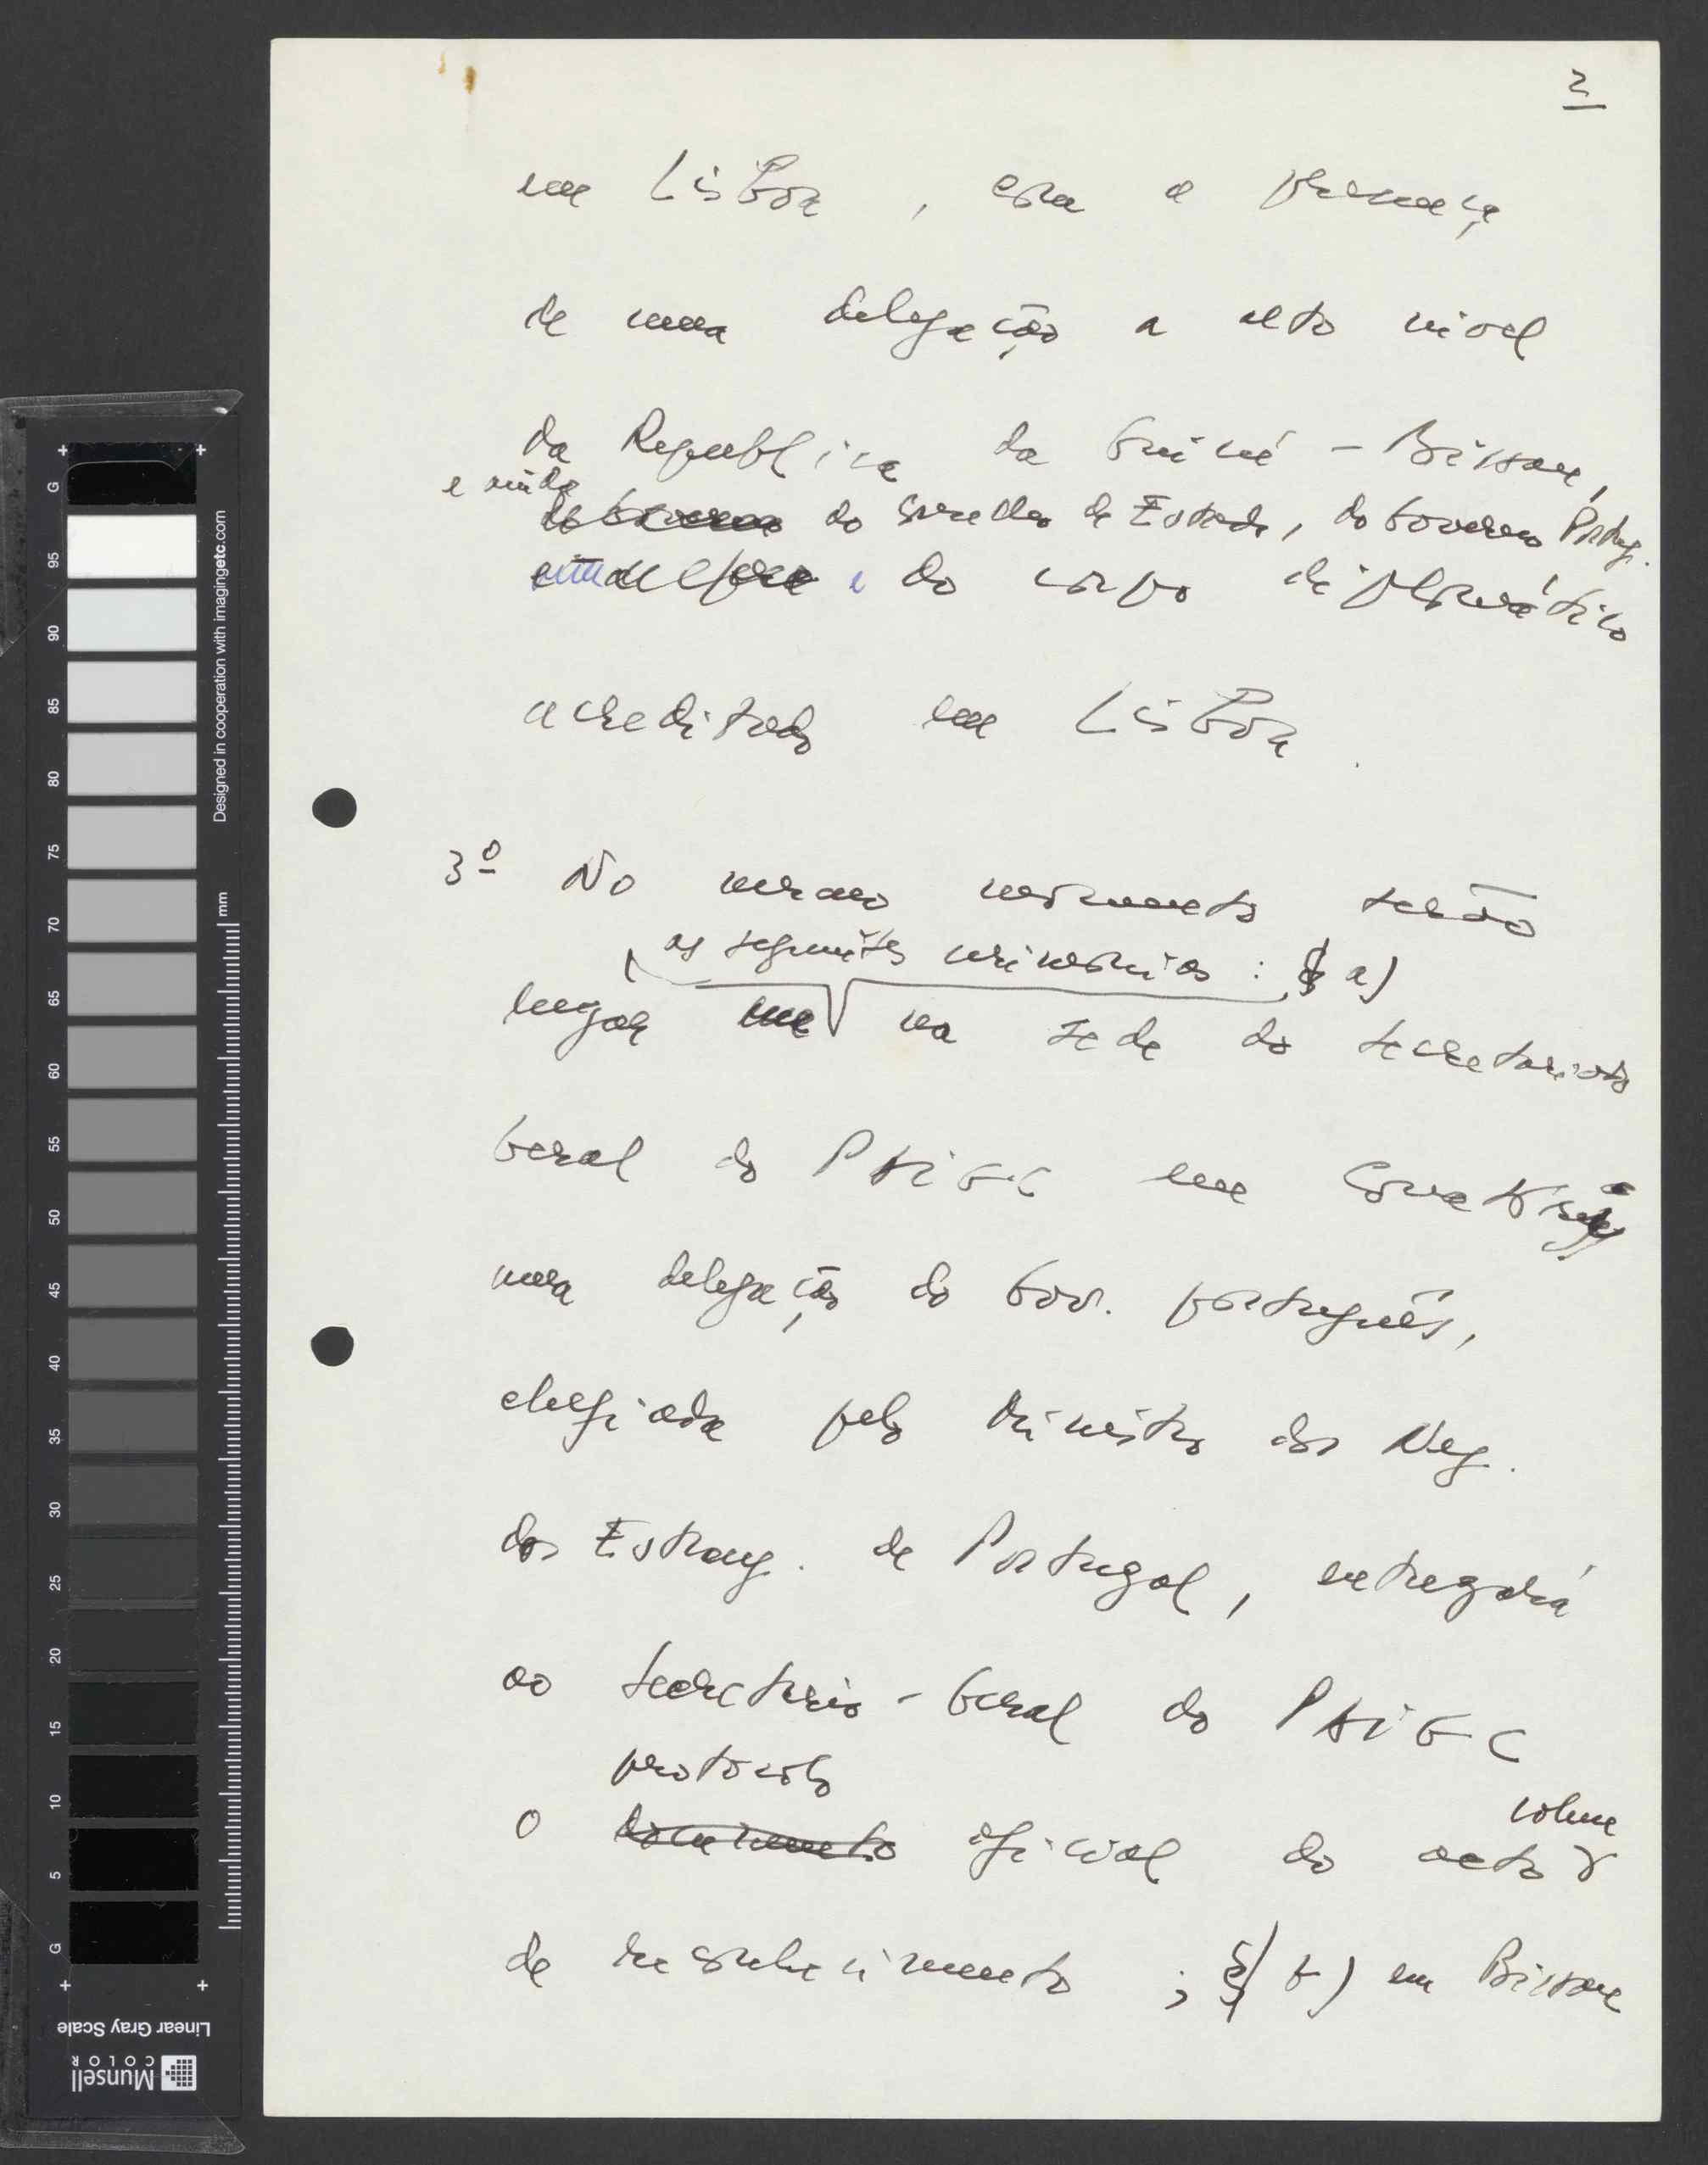 2
em Lisboa, com a presença
de uma delegação a alto nivel
da Republica da Guiné-Bissau,
e ainda
do Governo do Conselho de Estado, do Governo Portug.
e do corpo diplomático
acreditado em Lisboa.
3º No mesmo momento terão
as seguintes cerimónias: a)
lugar na sede do secretariado
Geral do PAIGC em Conakry
uma delegação do Gov. português,
chefiada pelo Ministro dos Neg.
dos Estrang. de Portugal, entregará
ao secretário-Geral do PAIGC
protocolo
o documento oficial do acto
solene
de reconhecimento; b) em Bissau
G 95 90 85 80 75 70 65 60 55 50 45 40 35 30 25 20 15 10 5 G
mm
Designed in cooperation with imagingetc.com
Linear Gray Scale
Munsell
COLOR